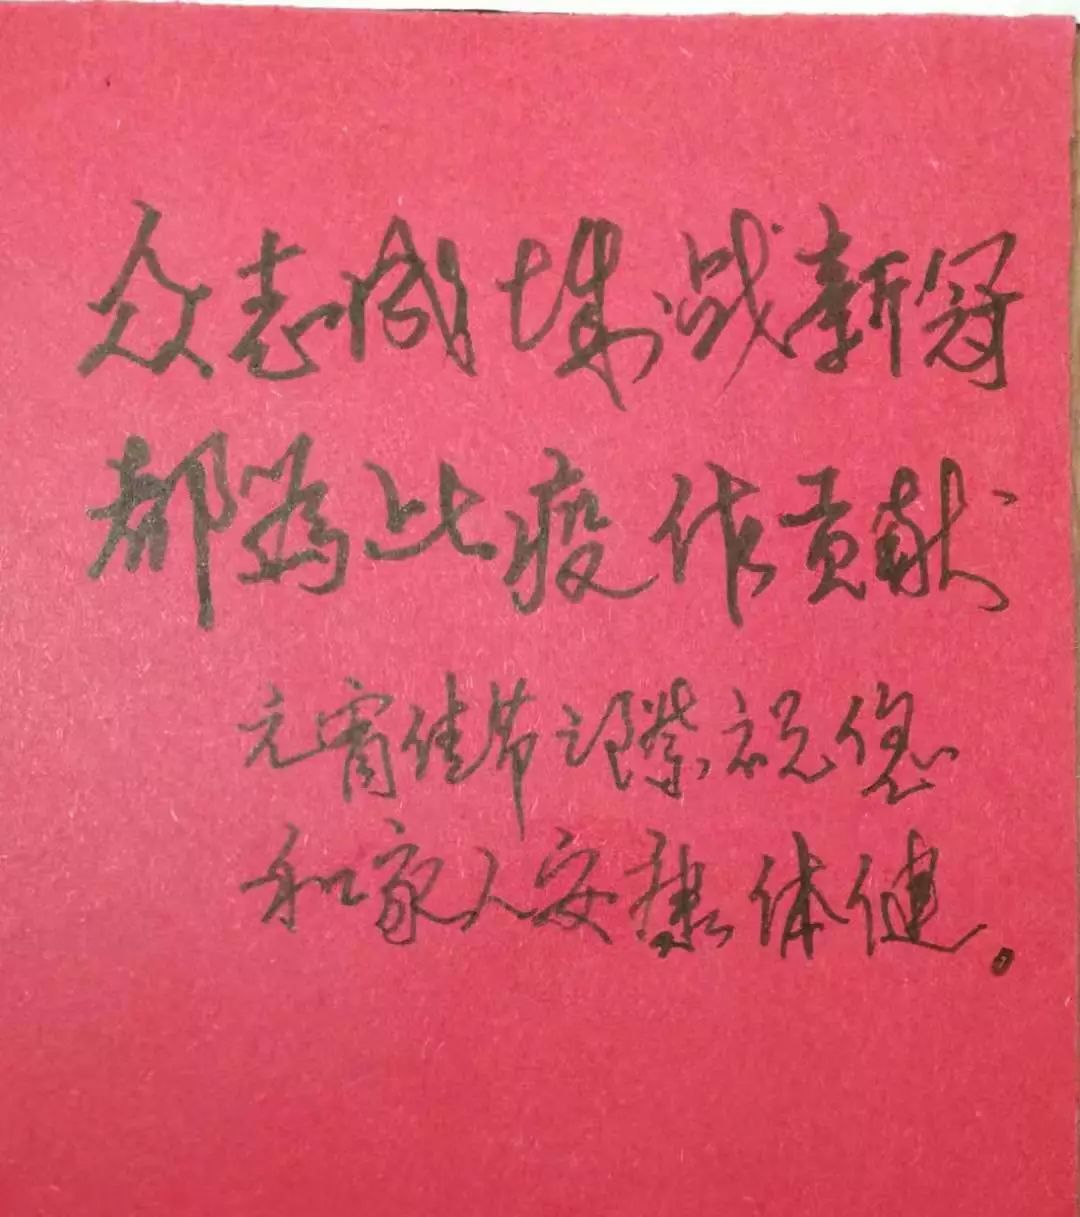 众志成城战新冠
都为此疫作贡献
元宵佳节之际祝您
和家人安康体健。